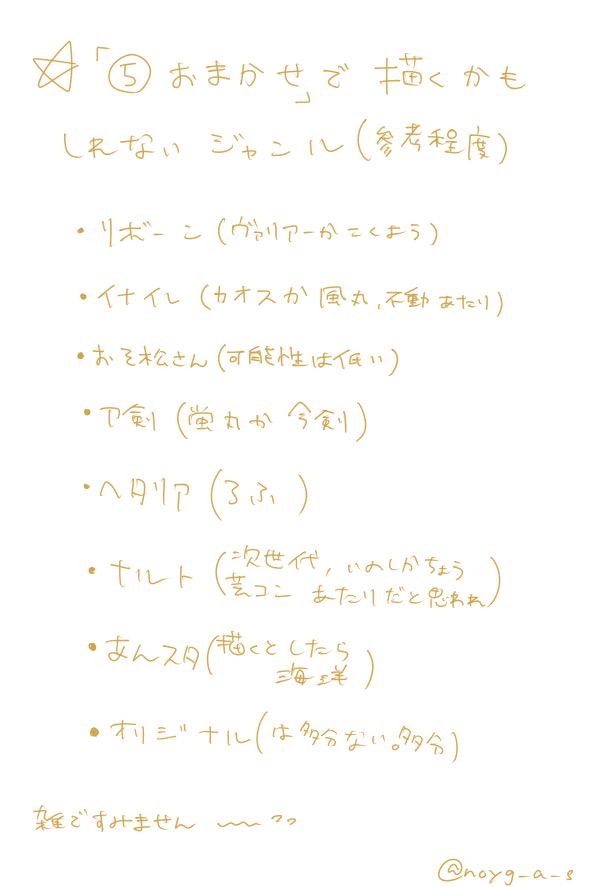 ☆「⑤おまかせ」で描くかも
しれないジャンル(参考程度)
・リボーン(ヴァリアーかこくよう)
・イナイレ(カオスか風丸、不動あたり)
・おそ松さん(可能性は低い)
・刀剣(蛍丸か今剣)
・ヘタリア(ろふ)
・ナルト(次世代、いのしかちょう
芸コンあたりだと思われ)
・あんスタ(描くとしたら
海洋)
・オリジナル(は多分ない。多分)
雑ですみません 〜〜
@noyg_a_s